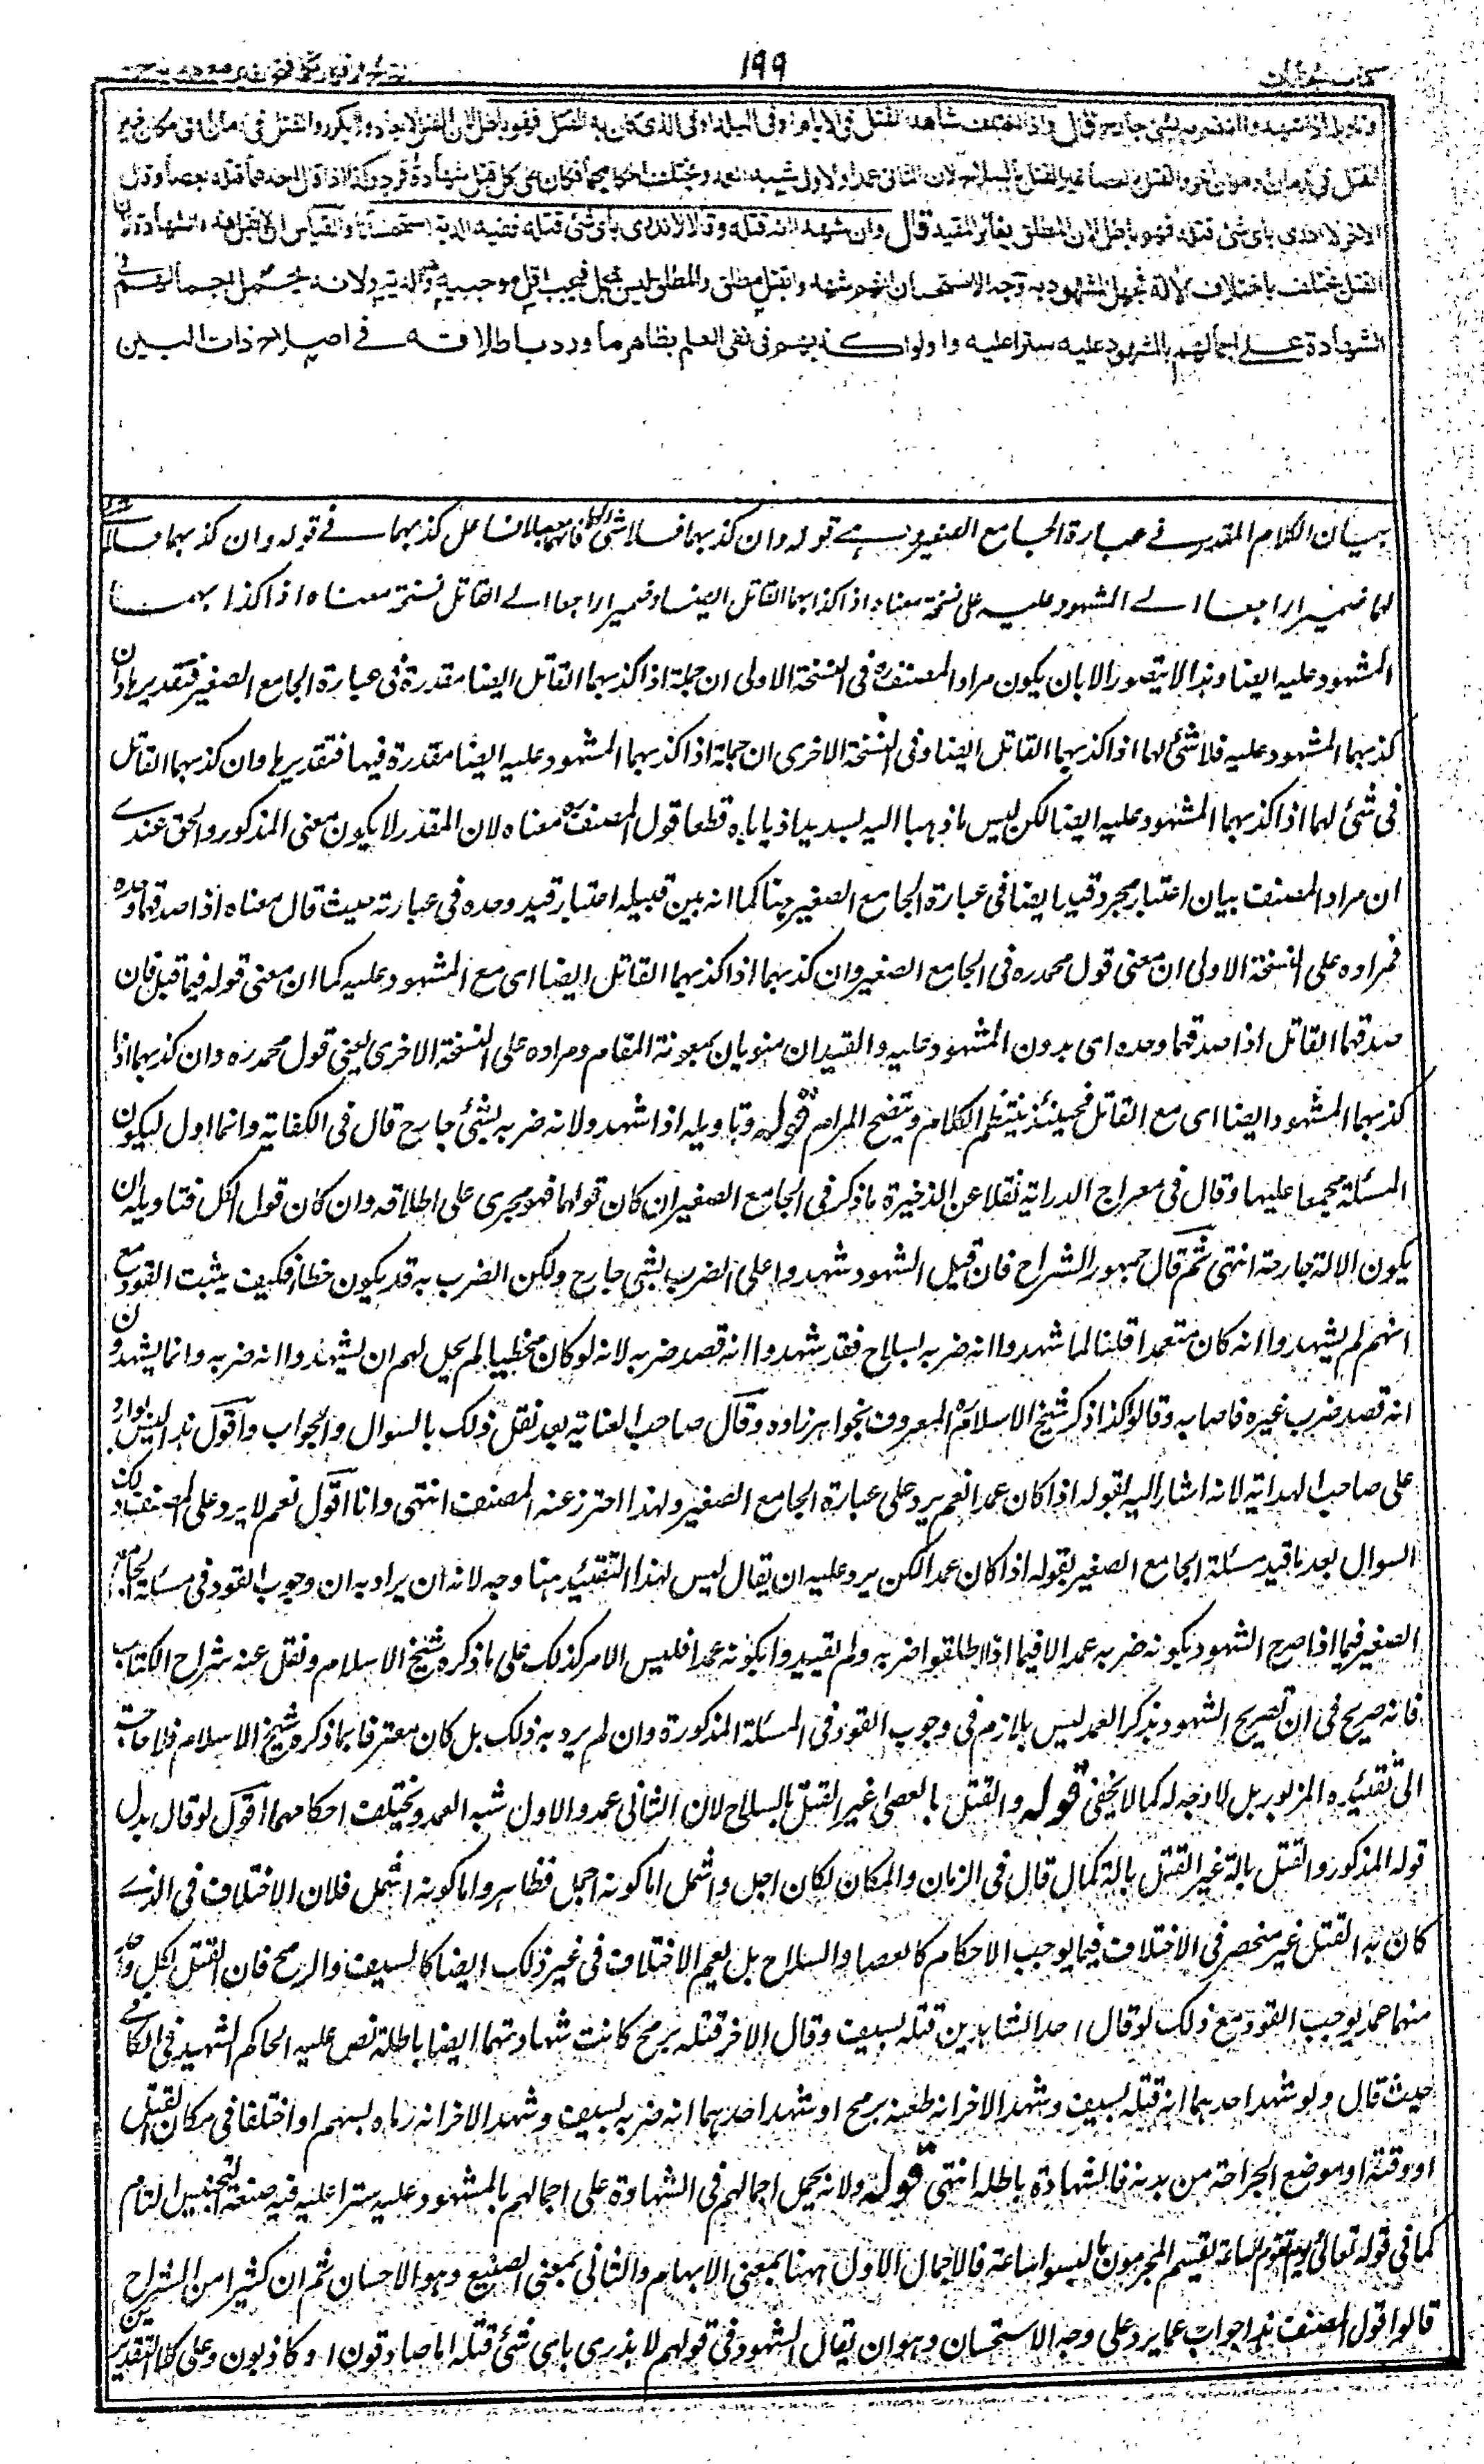 ١٩٩
وتاويله اذا شهدوا انه ضربه بشئ جارح قال واذا اختلف شاهدا القتل في الايام او في البلد او في الذي كان به القتل فهو باطل لان القتل لا يعاد ولا يكرر والقتل في زمان او في مكان غير
القتل في زمان او مكان اخر والقتل بالعصا غير القتل بالسلاح لان الثاني عمد والاول شبه العمد ويختلف احكامهما فكان على كل قتل شهادة فرد وكذا اذا قال احدهما قتله بعصا وقال
الاخر لا ادري باي شئ قتله فهو باطل لان المطلق يغاير المقيد قال وان شهدا انه قتله وقالا لا ندري باي شئ قتله ففيه الدية استحسانا والقياس ان لا تقبل هذه الشهادة لان
القتل يختلف باختلاف الالة فجهل المشهود به وجه الاستحسان انهم شهدوا بقتل مطلق والمطلق ليس بمجمل فيجب اقل موجبيه وهو الدية ولانه يحتمل اجمالهم في
الشهادة على اجمالهم بالمشهود عليه سترا عليه واولوا كذبهم في نفي العلم بظاهر ما ورد باطلاقه في اصلاح ذات البين
بيان الكلام المقدر في عبارة الجامع الصغير وهي قوله وان كذبهما فلا شئ لهما
لهما ضميرا راجعا الى المشهود عليه على نسخة معناه اذا كذبهما القاتل ايضا وضميرا راجعا الى القاتل نسخة معناه اذا كذبهما
المشهود عليه ايضا وهذا لا يتصور الا بان يكون مراد المصنف في النسخة الاولى ان جملة اذا كذبهما القاتل ايضا مقدرة في عبارة الجامع الصغير فتقديرها وان
كذبهما المشهود عليه فلا شئ لهما اذا كذبهما القاتل ايضا وفي النسخة الاخرى ان جملة اذا كذبهما المشهود عليه ايضا مقدرة فيها فتقديرها وان كذبهما القاتل
في شئ لهما اذا كذبهما المشهود عليه ايضا لكن ليس ما ذهبا اليه بسديد اذ ياباه قطعا قول المصنف معناه لان المقدر لا يكون معنى المذكور والحق عندي
ان مراد المصنف بيان اعتبار مجرد قيد ايضا في عبارة الجامع الصغير هنا كما انه بين قبيله اعتبار قيد وحده في عبارته حيث قال معناه اذا صدقهما وحده
فمراده على النسخة الاولى ان معنى قول محمد ره في الجامع الصغير وان كذبهما اذا كذبهما القاتل ايضا اى مع المشهود عليه كما ان معنى قوله فيما قبل فان
صدقهما القاتل اذا صدقهما وحده اى بدون المشهود عليه والقيدان منويان بمعونة المقام ومراده على النسخة الاخرى يعني قول محمد ره وان كذبهما اذا
كذبهما المشهود ايضا اى مع القاتل فحينئذ ينتظم الكلام ويتضح المرام قوله وتاويله اذا شهدوا انه ضربه بشئ جارح قال في الكفاية وانما اول ليكون
المسئلة مجمعا عليها وقال في معراج الدراية نقلا عن الذخيرة ما ذكر في الجامع الصغير ان كان قولهما فهو مجرى على اطلاقه وان كان قول الكل فتاويله ان
يكون الالة جارحة انتهى ثم قال جمهور الشراح فان قيل الشهود شهدوا على الضرب بشئ جارح ولكن الضرب به قد يكون خطأ فكيف يثبت القود مع
انهم لم يشهدوا انه كان متعمدا قلنا لما شهدوا انه ضربه بسلاح فقد شهدوا انه قصد ضربه لانه لو كان مخطيا لم يحل لهم ان يشهدوا انه ضربه وانما يشهدون
انه قصد ضرب غيره فاصابه وقالوا كذا ذكر شيخ الاسلام المعروف بخواهر زاده وقال صاحب العناية بعد نقل ذلك بالسوال والجواب واقول هذا ليس بوارد
على صاحب الهداية لانه اشار اليه بقوله اذا كان عمدا نعم يرد على عبارة الجامع الصغير ولهذا احترز عنه المصنف انتهى وانا اقول نعم لا يرد على المصنف ذلك
السوال بعد ما قيد مسئلة الجامع الصغير بقوله اذا كان عمدا لكن يرد عليه ان يقال ليس لهذا التقييد هنا وجه لانه ان يراد به ان وجوب القود في مسئلة الجامع
الصغير فيما اذا صرح الشهود بكونه ضربه عمدا لا فيما اذا اطلقوا ضربه ولم يقيدوا بكونه عمدا فليس الامر كذلك على ما ذكره شيخ الاسلام ونقل عنه شراح الكتاب
فانه صريح في ان تصريح الشهود بذكر العمد ليس بلازم في وجوب القود في المسئلة المذكورة وان لم يرد به ذلك بل كان معترفا بما ذكره شيخ الاسلام فلا حاجة
الى تقييده المزبور بل لا وجه له كما لا يخفى قوله والقتل بالعصى غير القتل بالسلاح لان الثاني عمد والاول شبه العمد ويختلف احكامهما اقول لو قال بدل
قوله المذكور والقتل بالة غير القتل بالة كما قال في الزمان والمكان لكان اجل واشمل اما كونه اجمل فظاهر واما كونه اشمل فلان الاختلاف في الذي
كان به القتل غير منحصر في الاختلاف فيما يوجب الاحكام كالعصا والسلاح بل يعم الاختلاف في غير ذلك ايضا كالسيف والرمح فان القتل بكل واحد
منهما عمد يوجب القود مع ذلك لو قال احد الشاهدين قتله بسيف وقال الاخر قتله برمح كانت شهادتهما ايضا باطلة نص عليه الحاكم الشهيد في الكافي
حيث قال ولو شهد احدهما انه قتله بسيف وشهد الاخر انه طعنه برمح او شهد احدهما انه ضربه بسيف وشهد الاخر انه رماه بسهم او اختلفا في مكان القتل
او وقته او موضع الجراحة من بدنه فالشهادة باطلة انتهى قوله ولانه يحمل اجمالهم في الشهادة على اجمالهم بالمشهود عليه سترا عليه فيه صنعة التجنيس التام
كما في قوله تعالى يوم تقوم الساعة يقسم المجرمون ما لبثوا غير ساعة فالاجمال الاول ههنا بمعنى الابهام والثاني بمعنى الصنيع وهو الاحسان ثم ان كثيرا من الشراح
قالوا قول المصنف هذا جواب عما يرد على وجه الاستحسان وهو ان يقال الشهود في قولهم لا ندري باي شئ قتله اما صادقون او كاذبون وعلى كلا التقديرين